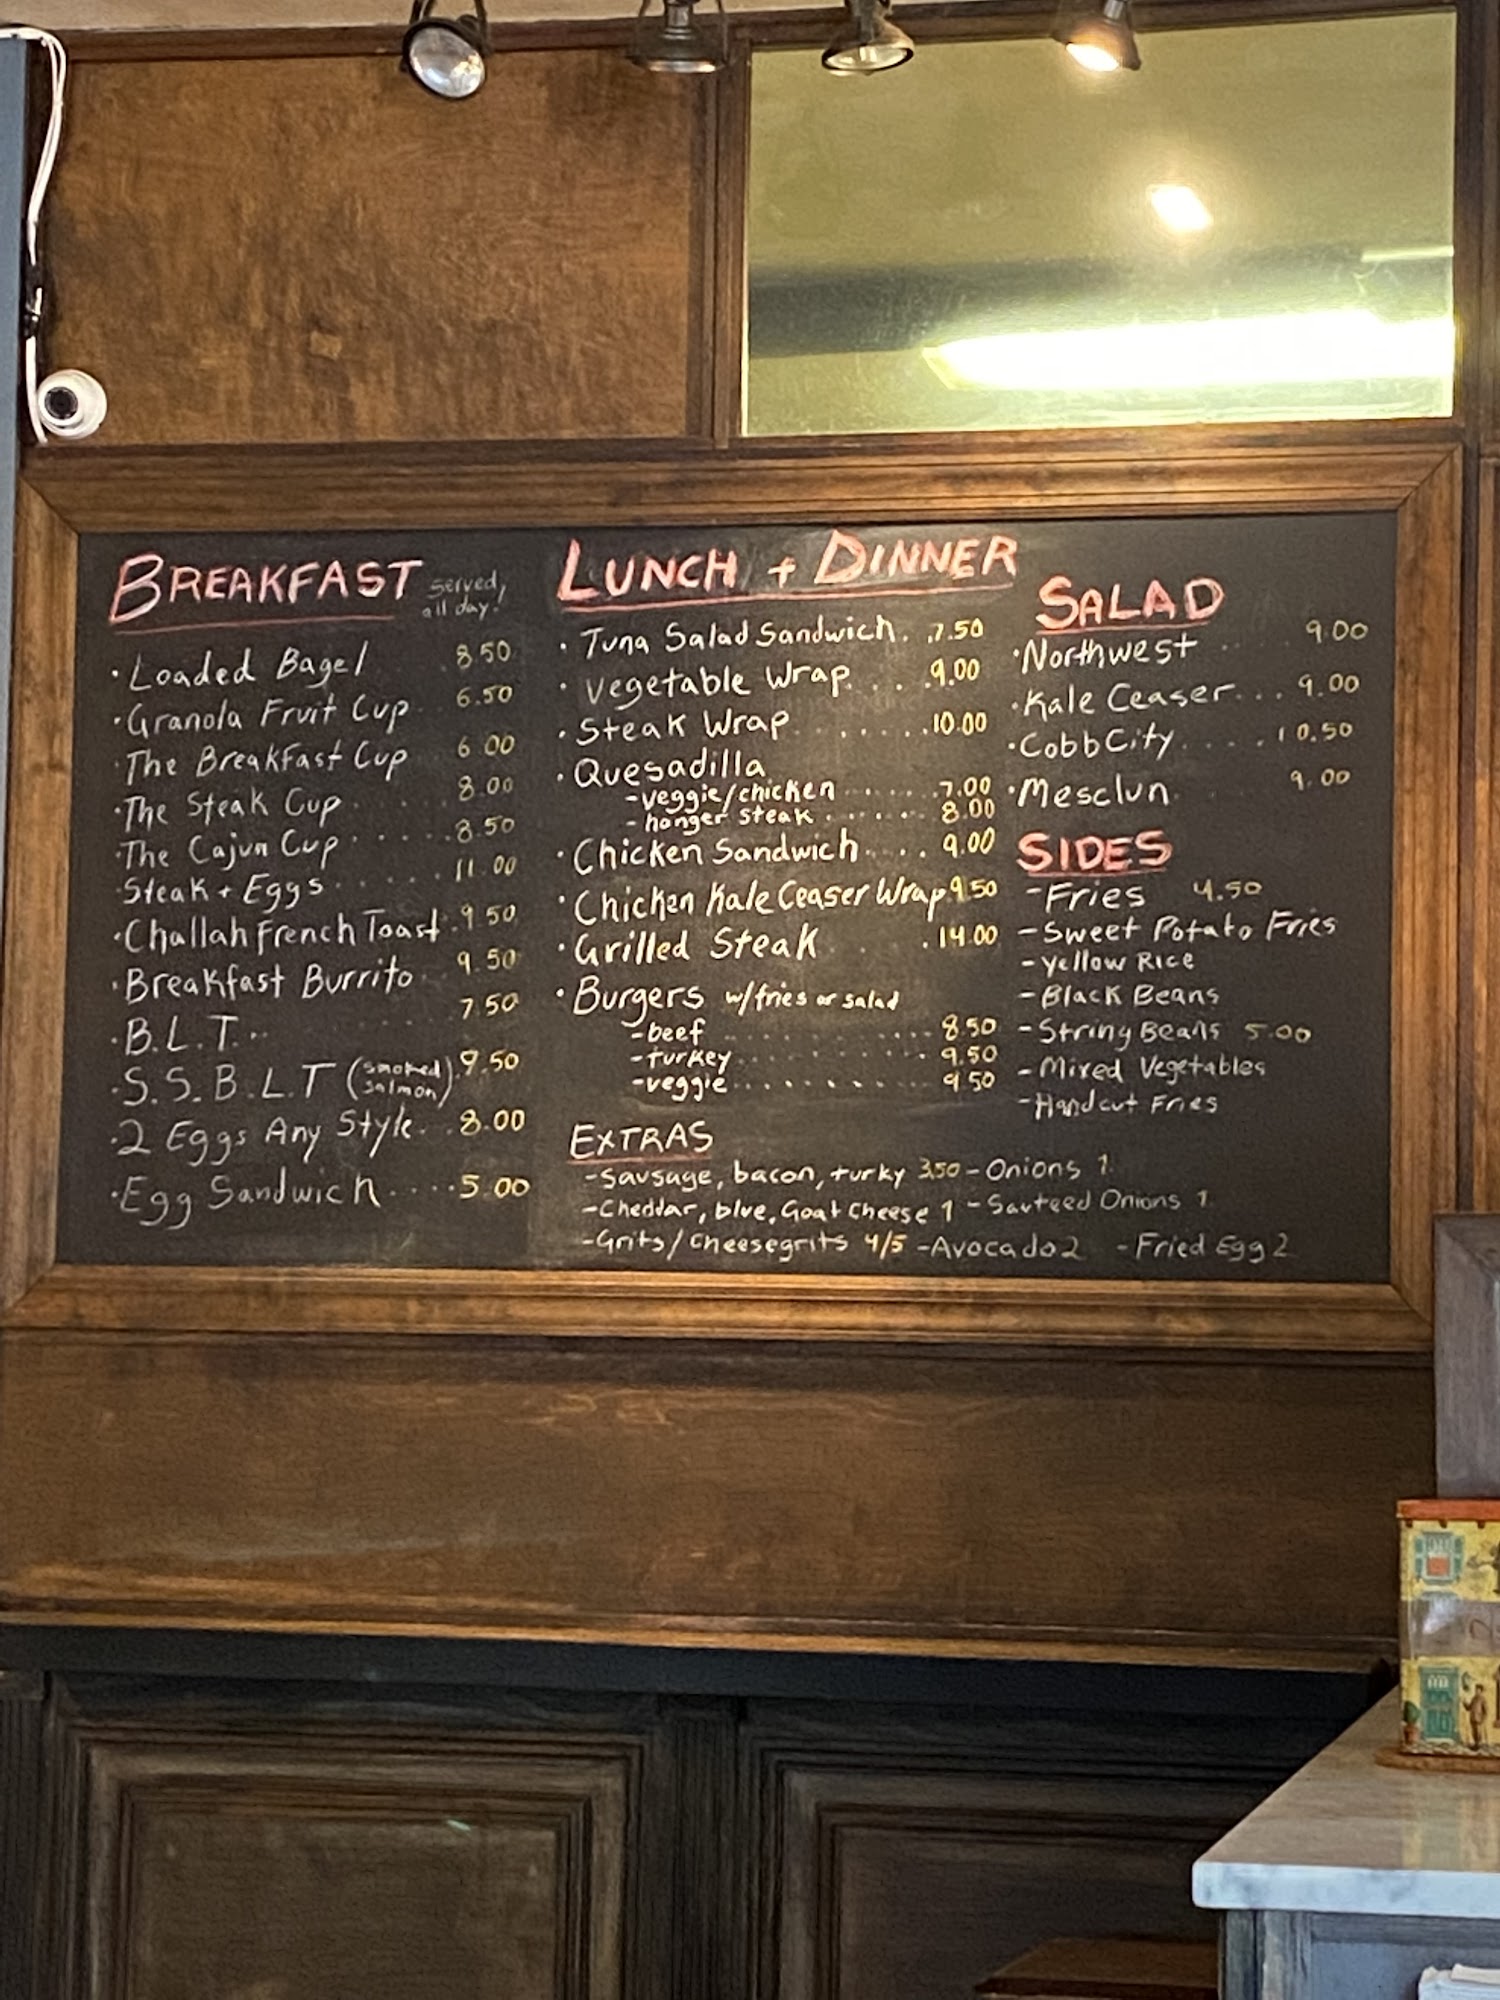 BREAKFAST served all day!
· Loaded Bagel . 8.50
· Granola Fruit Cup . 6.50
· The Breakfast Cup 6.00
· The Steak Cup . . . . 8.00
· The Cajun Cup . . . . . 8.50
· Steak + Eggs . . . . . . 11.00
· Challah French Toast . 9.50
· Breakfast Burrito . . 9.50
· B.L.T. . . . . . . 7.50
· S.S.B.L.T (smoked salmon) . 9.50
· 2 Eggs Any Style . . 8.00
· Egg Sandwich . . . . 5.00
LUNCH + DINNER
· Tuna Salad Sandwich . . 7.50
· Vegetable Wrap . . . . 9.00
· Steak Wrap . . . . . . . 10.00
· Quesadilla
- veggie/chicken . . . . . . . 7.00
- hanger steak . . . . . . 8.00
· Chicken Sandwich . . . . 9.00
· Chicken Kale Ceaser Wrap 9.50
· Grilled Steak . . . . 14.00
· Burgers w/fries or salad
- beef . . . . . . . . . . . 8.50
- turkey . . . . . . . . . . 9.50
- veggie . . . . . . . . . 9.50
EXTRAS
- Sausage, bacon, turky 3.50 - Onions 1.
- Cheddar, blue, Goat Cheese 1 - Sauteed Onions 1.
- Grits/Cheesegrits 4/5 - Avocado 2 - Fried Egg 2
SALAD
· Northwest . . . . 9.00
· Kale Ceaser . . . 9.00
· Cobb City . . . . . 10.50
· Mesclun . . 9.00
SIDES
- Fries 4.50
- Sweet Potato Fries
- Yellow Rice
- Black Beans
- String Beans 5.00
- Mixed Vegetables
- Handcut Fries